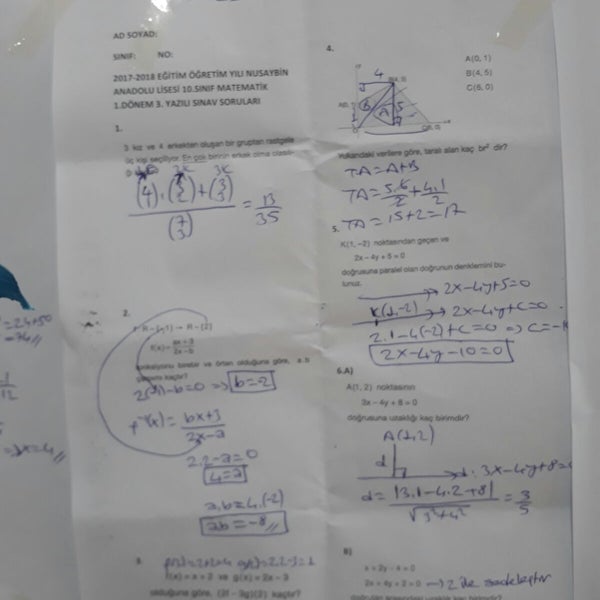 AD SOYAD:
SINIF: NO:
2017-2018 EĞİTİM ÖĞRETİM YILI NUSAYBİN
ANADOLU LİSESİ 10.SINIF MATEMATİK
1.DÖNEM 3. YAZILI SINAV SORULARI
1.
3 kız ve 4 erkekten oluşan bir gruptan rastgele
üç kişi seçiliyor. En çok birinin erkek olma
13
35
2.
f(x)= ax+3
2x-b
fonksiyonu birebir ve örten olduğuna göre, a.b
kaçtır?
b=2
f⁻¹(x)= bx+3
2x-a
2.2-a=0
4=a
a.b=4.(-2)
ab=-8//
f(x) = x + 2 ve g(x) = 2x - 3
olduğuna göre, (2f - 3g)(2) kaçtır?
4.
A(0, 1)
B(4, 5)
C(6, 0)
Yukarıdaki verilere göre, taralı alan kaç br² dir?
TA=A+B
TA= 5.6 + 4.1
2 2
TA=15+2=17
5.
K(1, -2) noktasından geçen ve
2x - 4y + 5 = 0
doğrusuna paralel olan doğrunun denklemini bu-
lunuz.
2x-4y+5=0
K(1,-2) 2x-4y+c=0
2.1-4(-2)+c=0 => c=-
2x-4y-10=0
6.A)
A(1, 2) noktasının
3x - 4y + 8 = 0
doğrusuna uzaklığı kaç birimdir?
A(1,2)
d
d: 3x-4y+8=
d= |3.1-4.2+8| = 3
√3²+4² 5
B)
x + 2y - 4 = 0
2x + 4y + 2 = 0 → 2 ile sadeleştir
doğruları arasındaki uzaklık kaç birimdir?